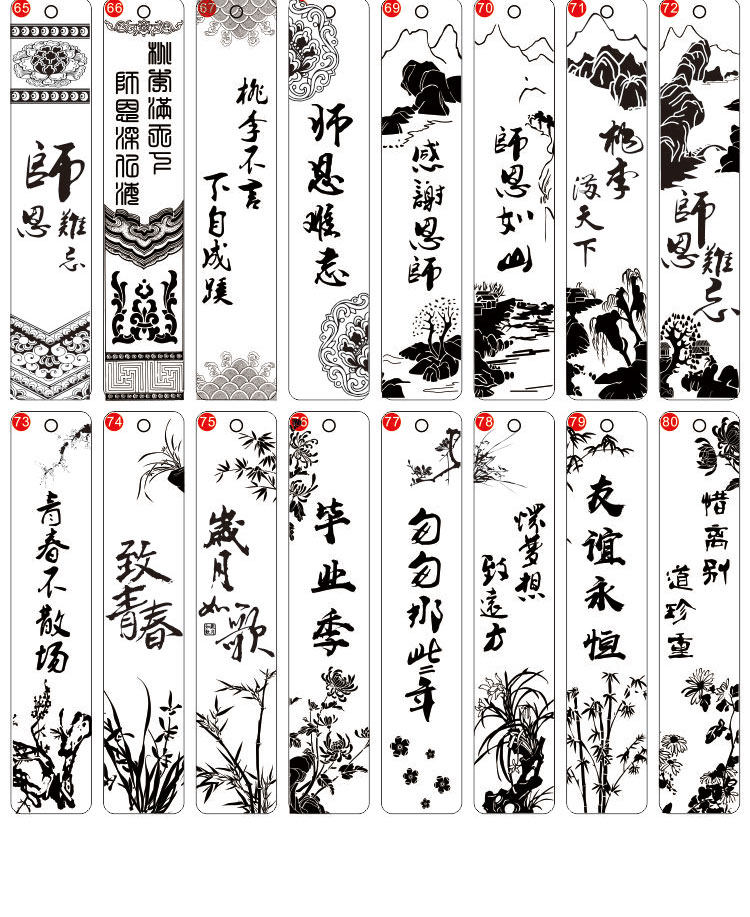 65
師恩
難忘
66
桃李滿天下
師恩深似海
67
桃李不言
下自成蹊
师恩难忘
69
感謝恩師
70
師恩如山
71
桃李
滿天下
72
師恩
難忘
73
青春不散场
74
致
青春
75
歲月
如歌
76
毕业季
77
匆匆那些年
78
夢想
致遠方
79
友谊永恒
80
惜离别
道珍重